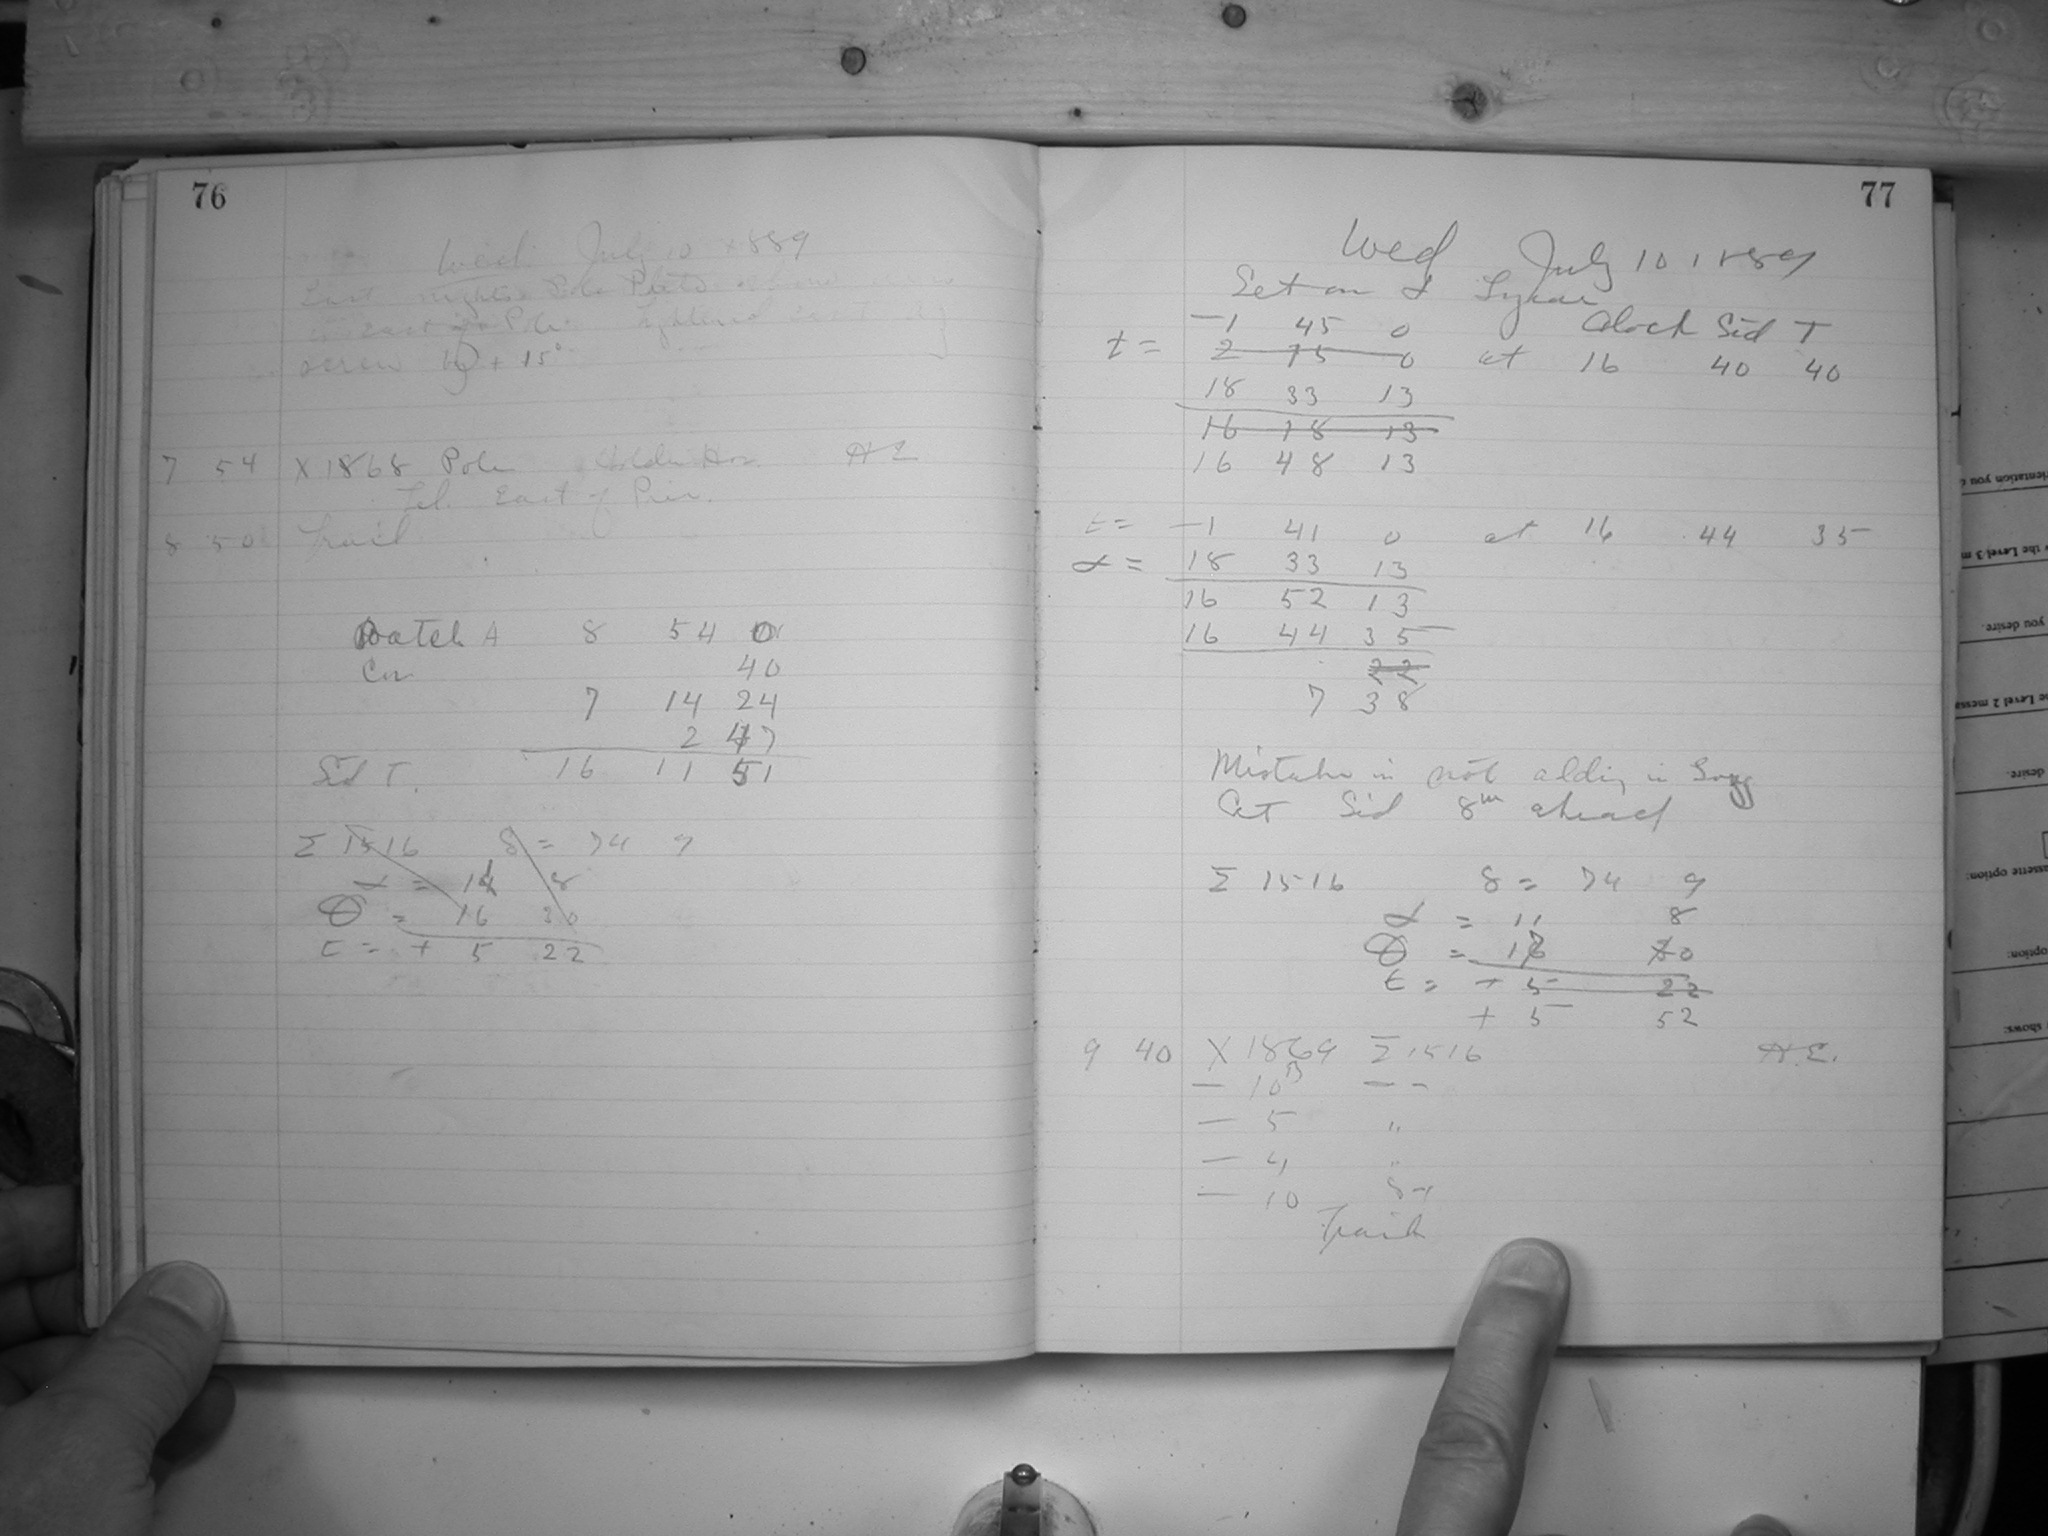 76
Wed July 10 1889
Last night's Pole Plate
East of Pole tightened East
screw by + 15°
7 54 X 1868 Pole Golden Hor. H E
Tel. East of Pier.
8 50 Trail
Watch A 8 54 0
Cor 40
7 14 24
2 47
Sid T. 16 11 51
Σ 1516 δ = 74 9
α = 11 8
θ = 16 30
t = + 5 22
77
Wed July 10 1889
Set on α Lyrae
-1 45 0 Clock Sid T
t = 2 15 0 at 16 40 40
18 33 13
16 18 13
16 48 13
t = -1 41 0 at 16 44 35
α = 18 33 13
16 52 13
16 44 35
22
7 38
Mistake in not adding in
Set Sid 8m ahead
Σ 1516 δ = 74 9
α = 11 8
θ = 0
t = + 5 22
+ 5 52
9 40 X 1869 Σ 1516 H.E.
— 10s — -
— 5 "
— 4 "
— 10
Trail
rientation you
the Level 3 m
you desire.
e Level 2 messa
desire.
ssette option:
option:
shows: